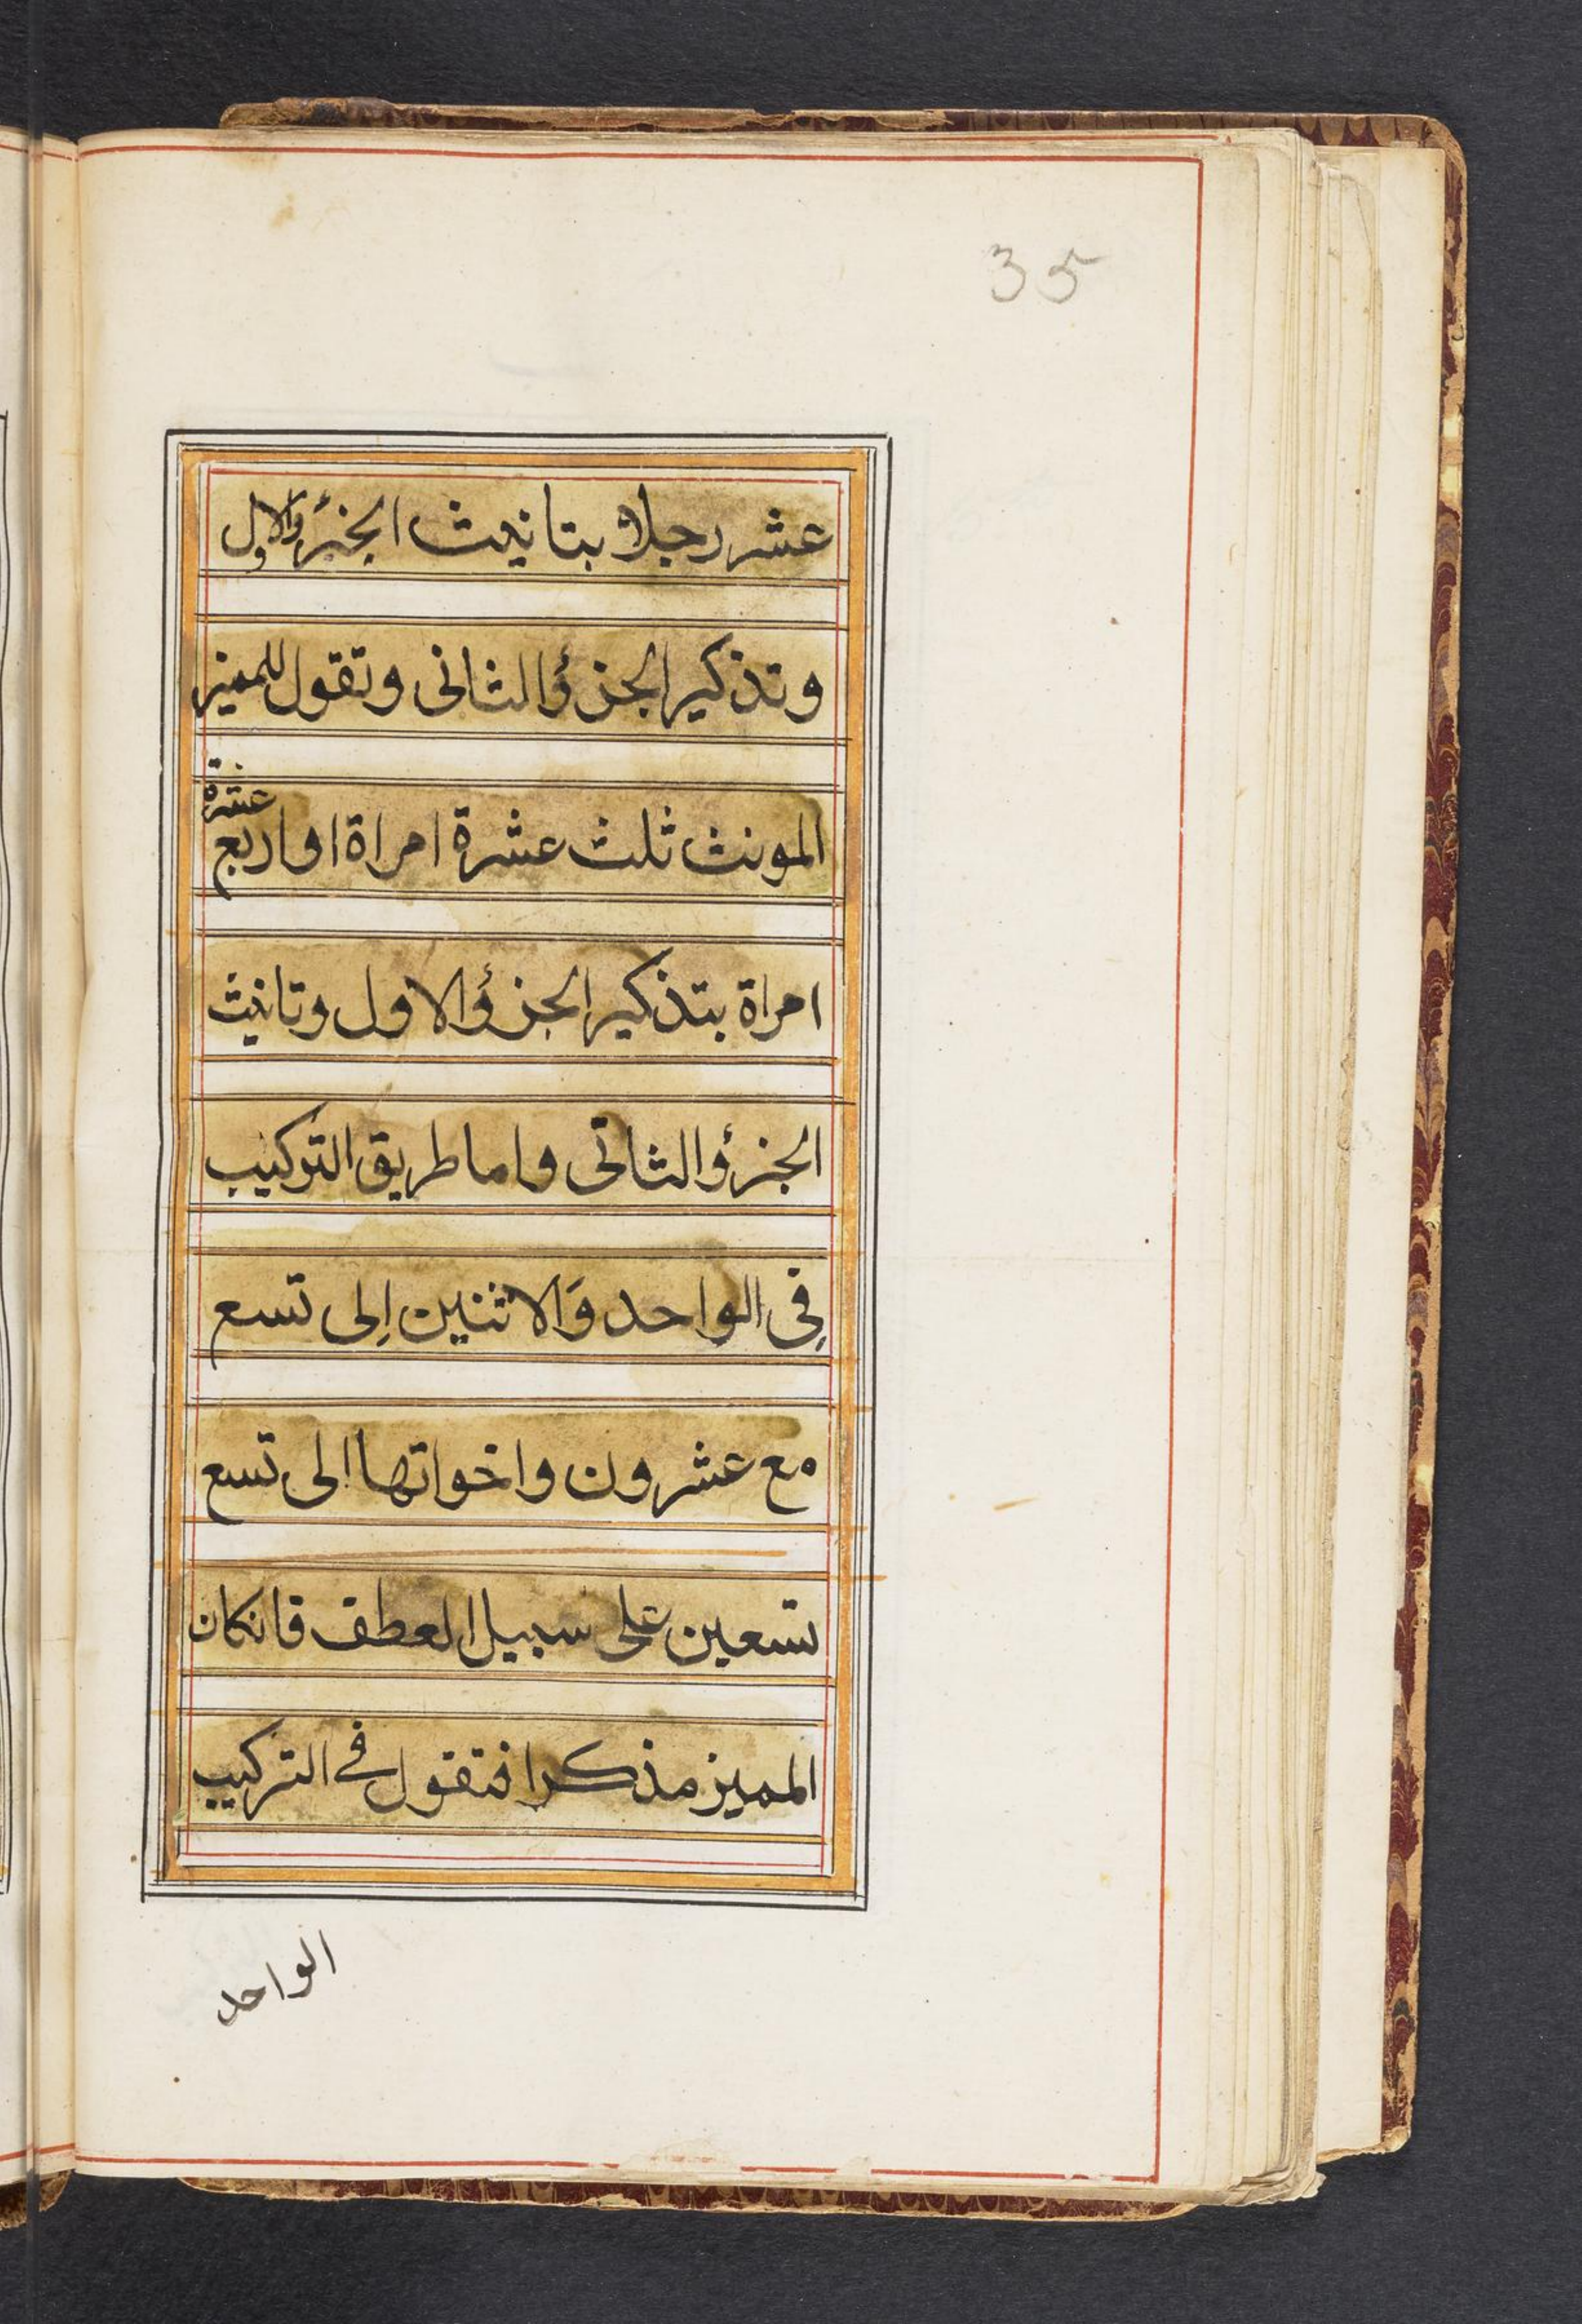 35
عشر رجلا بتانيث الجزؤ الاول
وتذكير الجزؤ الثانى وتقول للميز
المونث ثلث عشرة امراة او اربع عشرة
امراة بتذكير الجزؤ الاول وتانيث
الجزؤ الثانى واما طريق التركيب
فِى الواحد وَالاثنين اِلى تسع
مع عشرون واخواتها الى تسع
تسعين على سبيل العطف فانكان
المميز مذكرا فتقول فى التركيب
الواحد